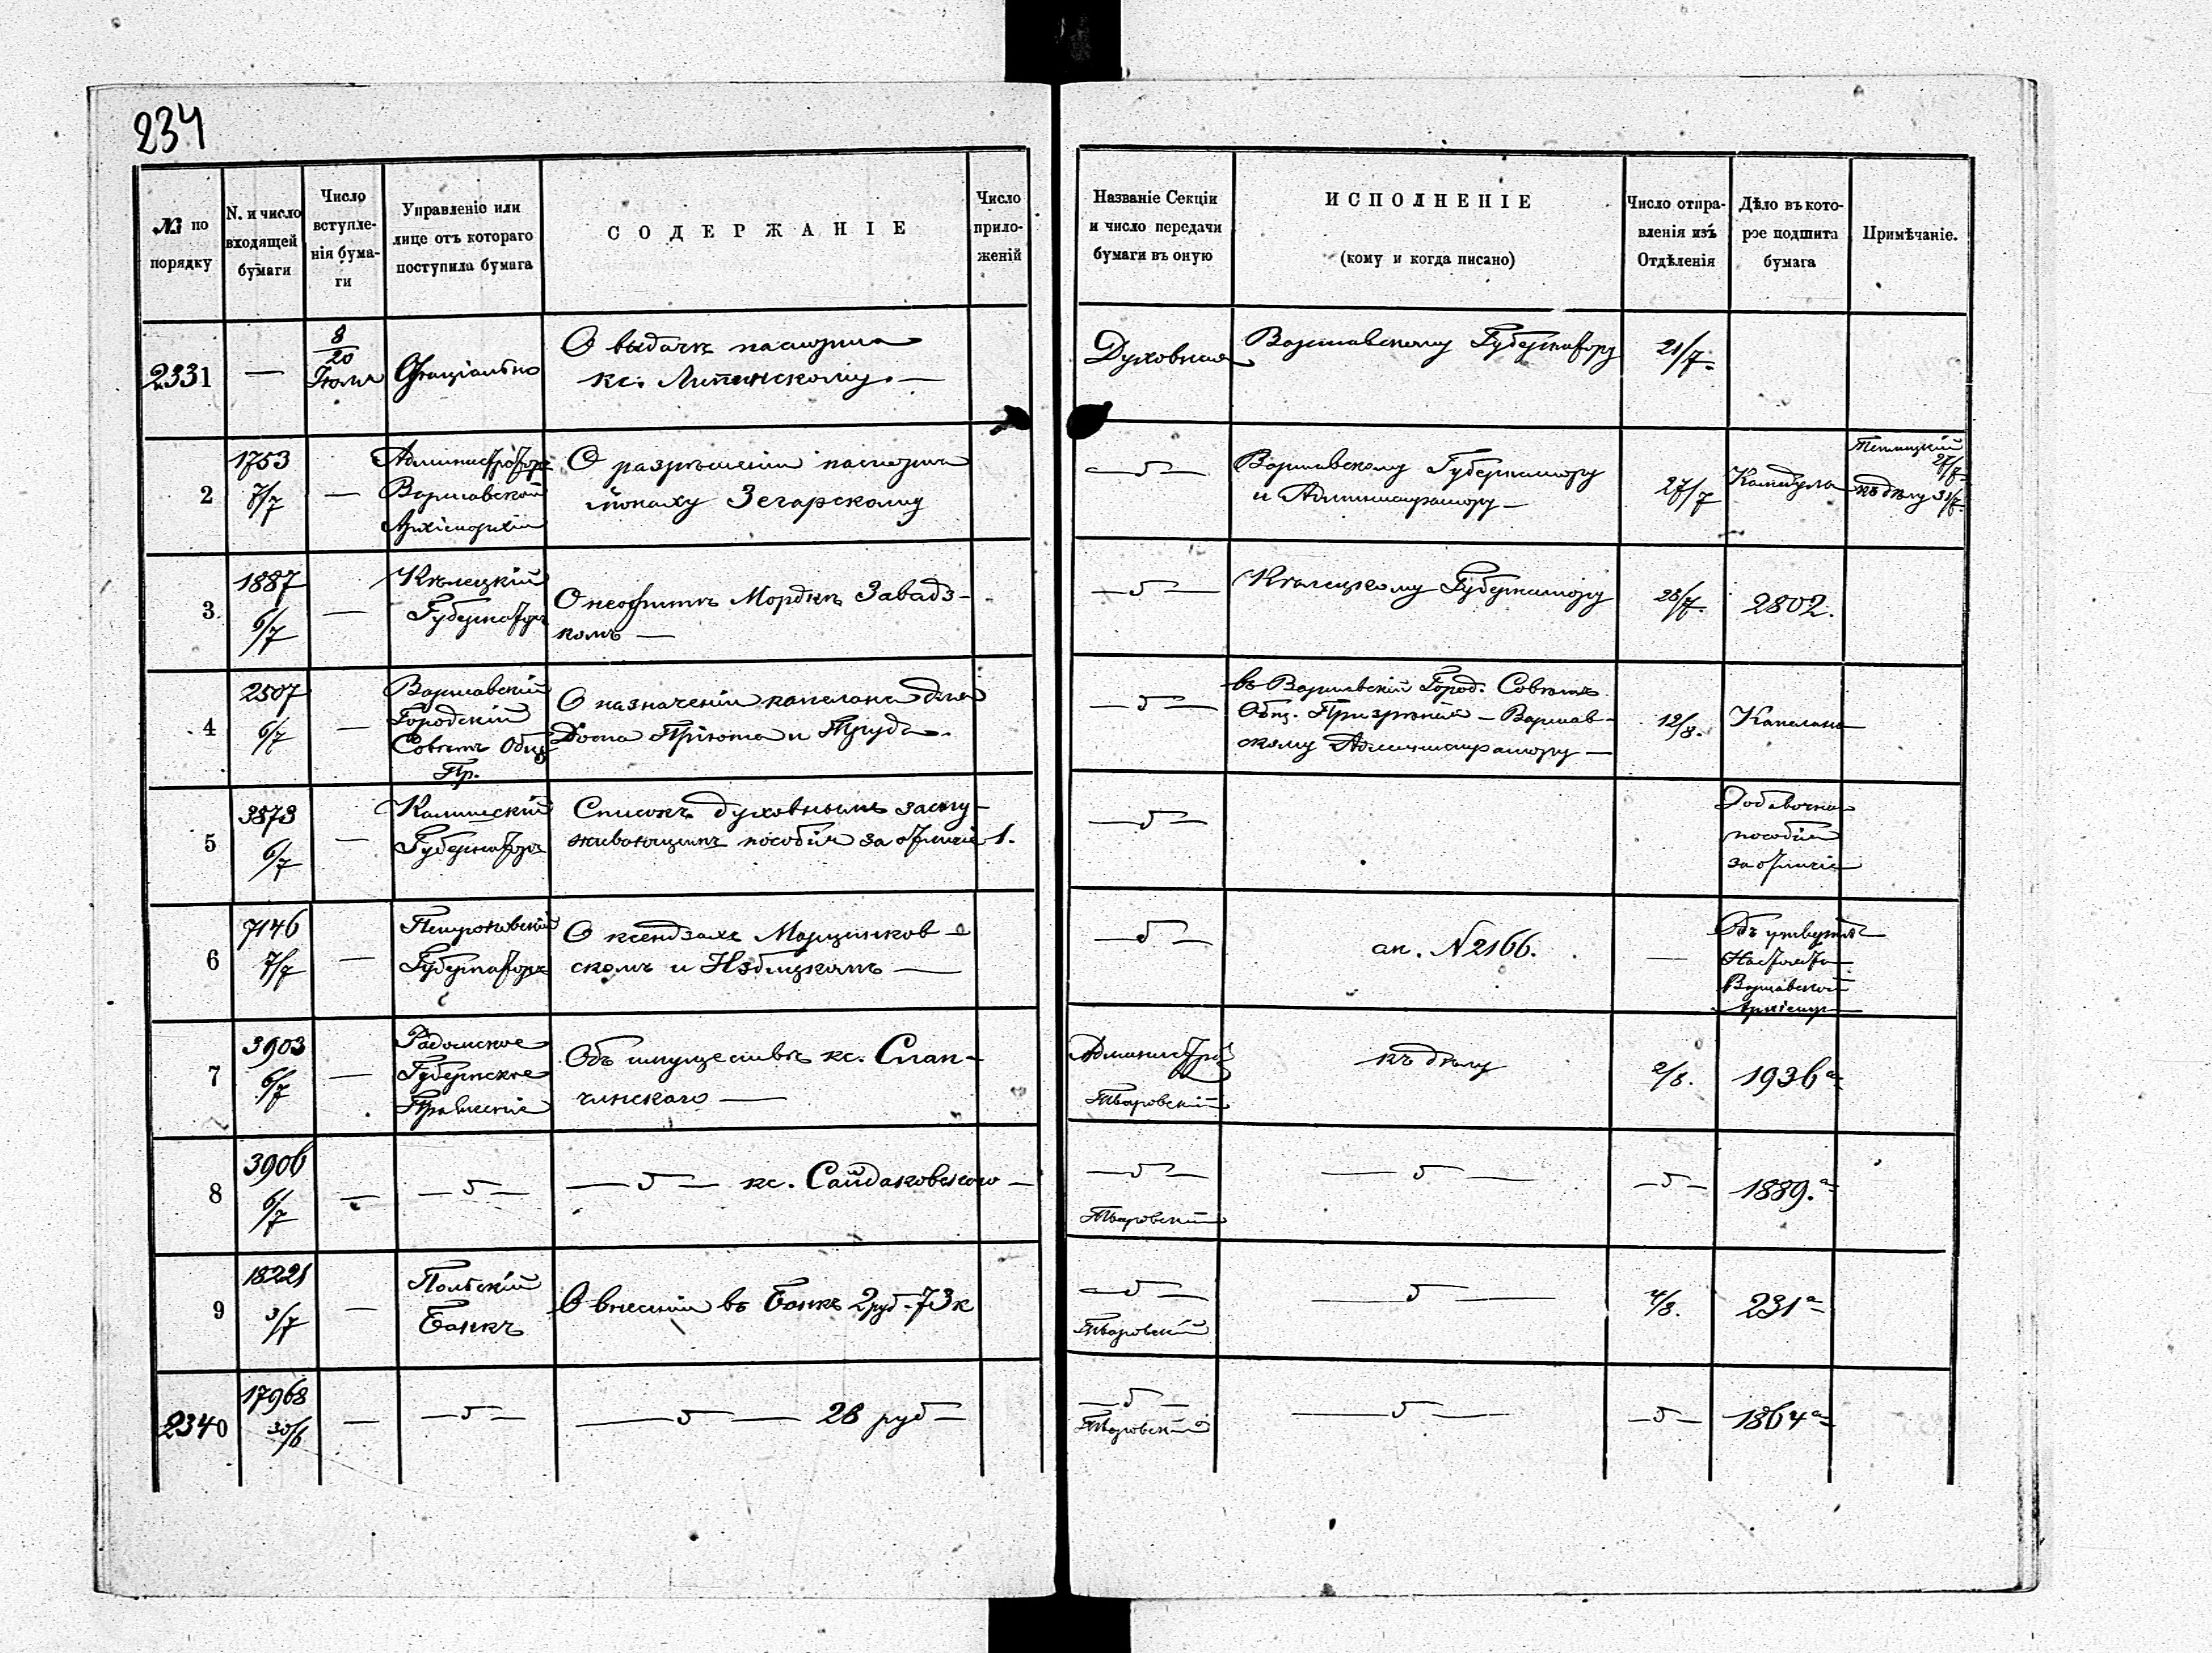 234
№ по порядку
N. и число входящей бумаги
Число вступле-нія бума-ги
Управленіе или лице отъ котораго поступила бумага
СОДЕРЖАНІЕ
Число прило-женій
Названіе Секціи и число передачи бумаги въ оную
ИСПОЛНЕНІЕ
(кому и когда писано)
Число отпра-вленія изъ Отдѣленія
Дѣло въ кото-рое подшита бумага
Примѣчаніе.
2331 — 8/20 Іюля
О выдачѣ паспорта
кс. Липинскому. —
Духовная
Варшавскому Губернатору
21/7.
2
1753
7/7
—
Администраторъ
Варшавской
Архіепархіи
О разрѣшеніи паспорта
монаху Зегарскому
— " —
Варшавскому Губернатору
и Администратору —
27/7
27/7
къ дѣлу 31/7
3.
1887
6/7
—
Кѣлецкій
Губернаторъ
О неофитѣ Мордкѣ Завадз-
комъ —
— " —
Кѣлецкому Губернатору
28/7.
2802.
4
2507
6/7
—
Варшавскій
Городскій
Совѣтъ Общ.
Пр.
О назначеніи капелана для
Дома Пріюта и Труда.
— " —
въ Варшавскій Город. Совѣтъ
Общ. Призрѣнія — Варшав-
скому Администратору —
12/8.
Капелана
5
3873
6/7
—
Калишскій
Губернаторъ
Списокъ духовнымъ заслу-
живающимъ пособія за отличіе
1.
— " —
Добавочныя
пособія
за отличіе
6
7146
7/7
—
Петроковскій
Губернаторъ
О ксендзахъ Марцинков-
скомъ и
— " —
ап. N 2166.
—
Варшавской
Архіепар
7
3903
6/7
—
Радомское
Губернское
Правленіе
Объ имуществѣ кс. Слап-
чинскаго —
Администр.
Тваровскій
къ дѣлу
2/8.
1936 а
8
3906
6/7
—
— " —
— " — кс. Сайдаковскаго —
— " —
Тваровскій
— " —
— " —
1889. а
9
18221
3/7
—
Польскій
Банкъ
О внесеніи въ Банкъ 2 руб - 73 к
— " —
Тваровскій
— " —
4/8.
231 а
2340
17968
30/6
—
— " —
— " — 28 руб —
— " —
Тваровскій
— " —
— " —
1864 а